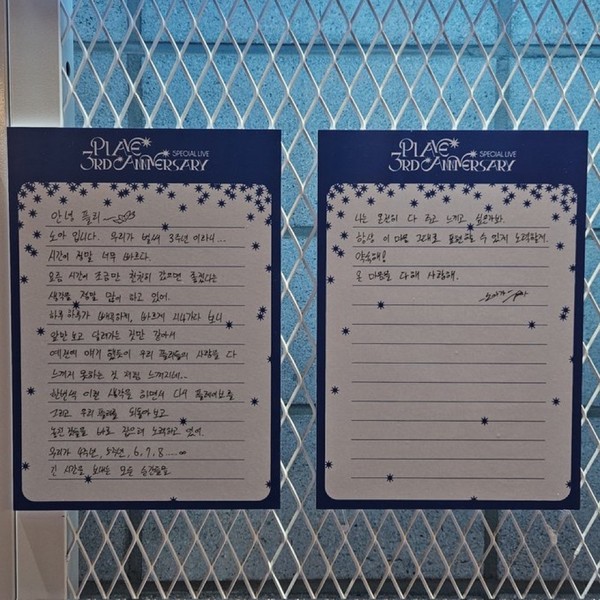 PLAVE
SPECIAL LIVE
3RD ANNIVERSARY
안녕 플리
노아 입니다. 우리가 벌써 3주년 이라니...
시간이 정말 너무 빠르다.
요즘 시간이 조금만 천천히 갔으면 좋겠다는
생각을 정말 많이 하고 있어.
하루 하루가 빠르게 지나가다 보니
앞만 보고 달려가는 것만 같아서
예전에 얘기 했듯이 우리 플리들의 사랑을 다
느끼지 못하는 것 처럼 느껴지네..
한번씩 이런 생각을 하면서 다시
그리고 우리 플리를 되돌아 보고
놓친 것들을 바로 잡으려 노력하고 있어.
우리가 4주년, 5주년, 6, 7, 8 ..... ∞
긴 시간을 보내는 모든 순간들을
PLAVE
SPECIAL LIVE
3RD ANNIVERSARY
나는 온전히 다 보고 느끼고 싶으니까.
항상 이 마음 그대로 표현할 수 있게 노력할게.
약속해!
온 마음을 다해 사랑해.
노아가